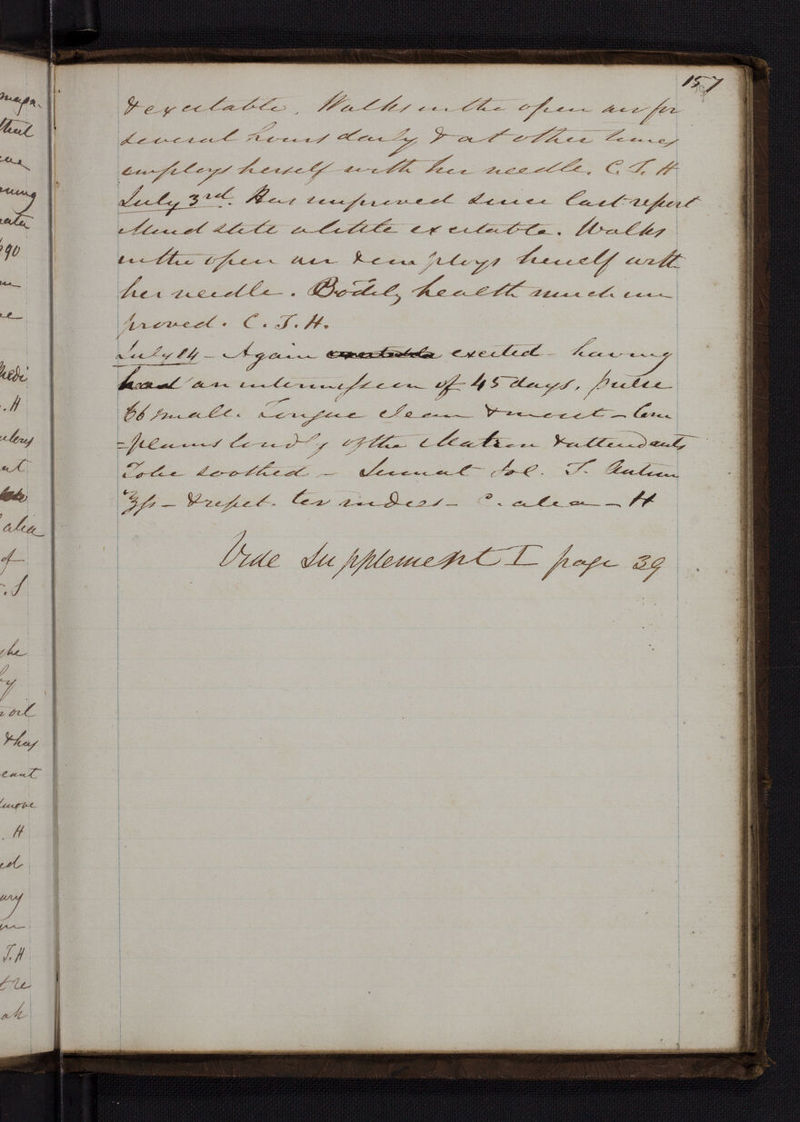 157
& excitable. Walks in the open air for
several hours daily & at other times
employs herself with her needle. C. T. H
July 3rd. Has improved since last report
Mind still a little excitable. Walks
in the open air & employs herself with
her needle. Bodily health much im
proved. C. T. H.
July 14 - Again excited - having
had an intermission of 45 days. pulse
66 small. Tongue clean & moist - Com
=plains loudly of the Matron & attendants
To be soothed - Sumat Sol. T. Antim
℥fs - & repet. ter in dies - C. alia - H
Vide Supplement I page 39